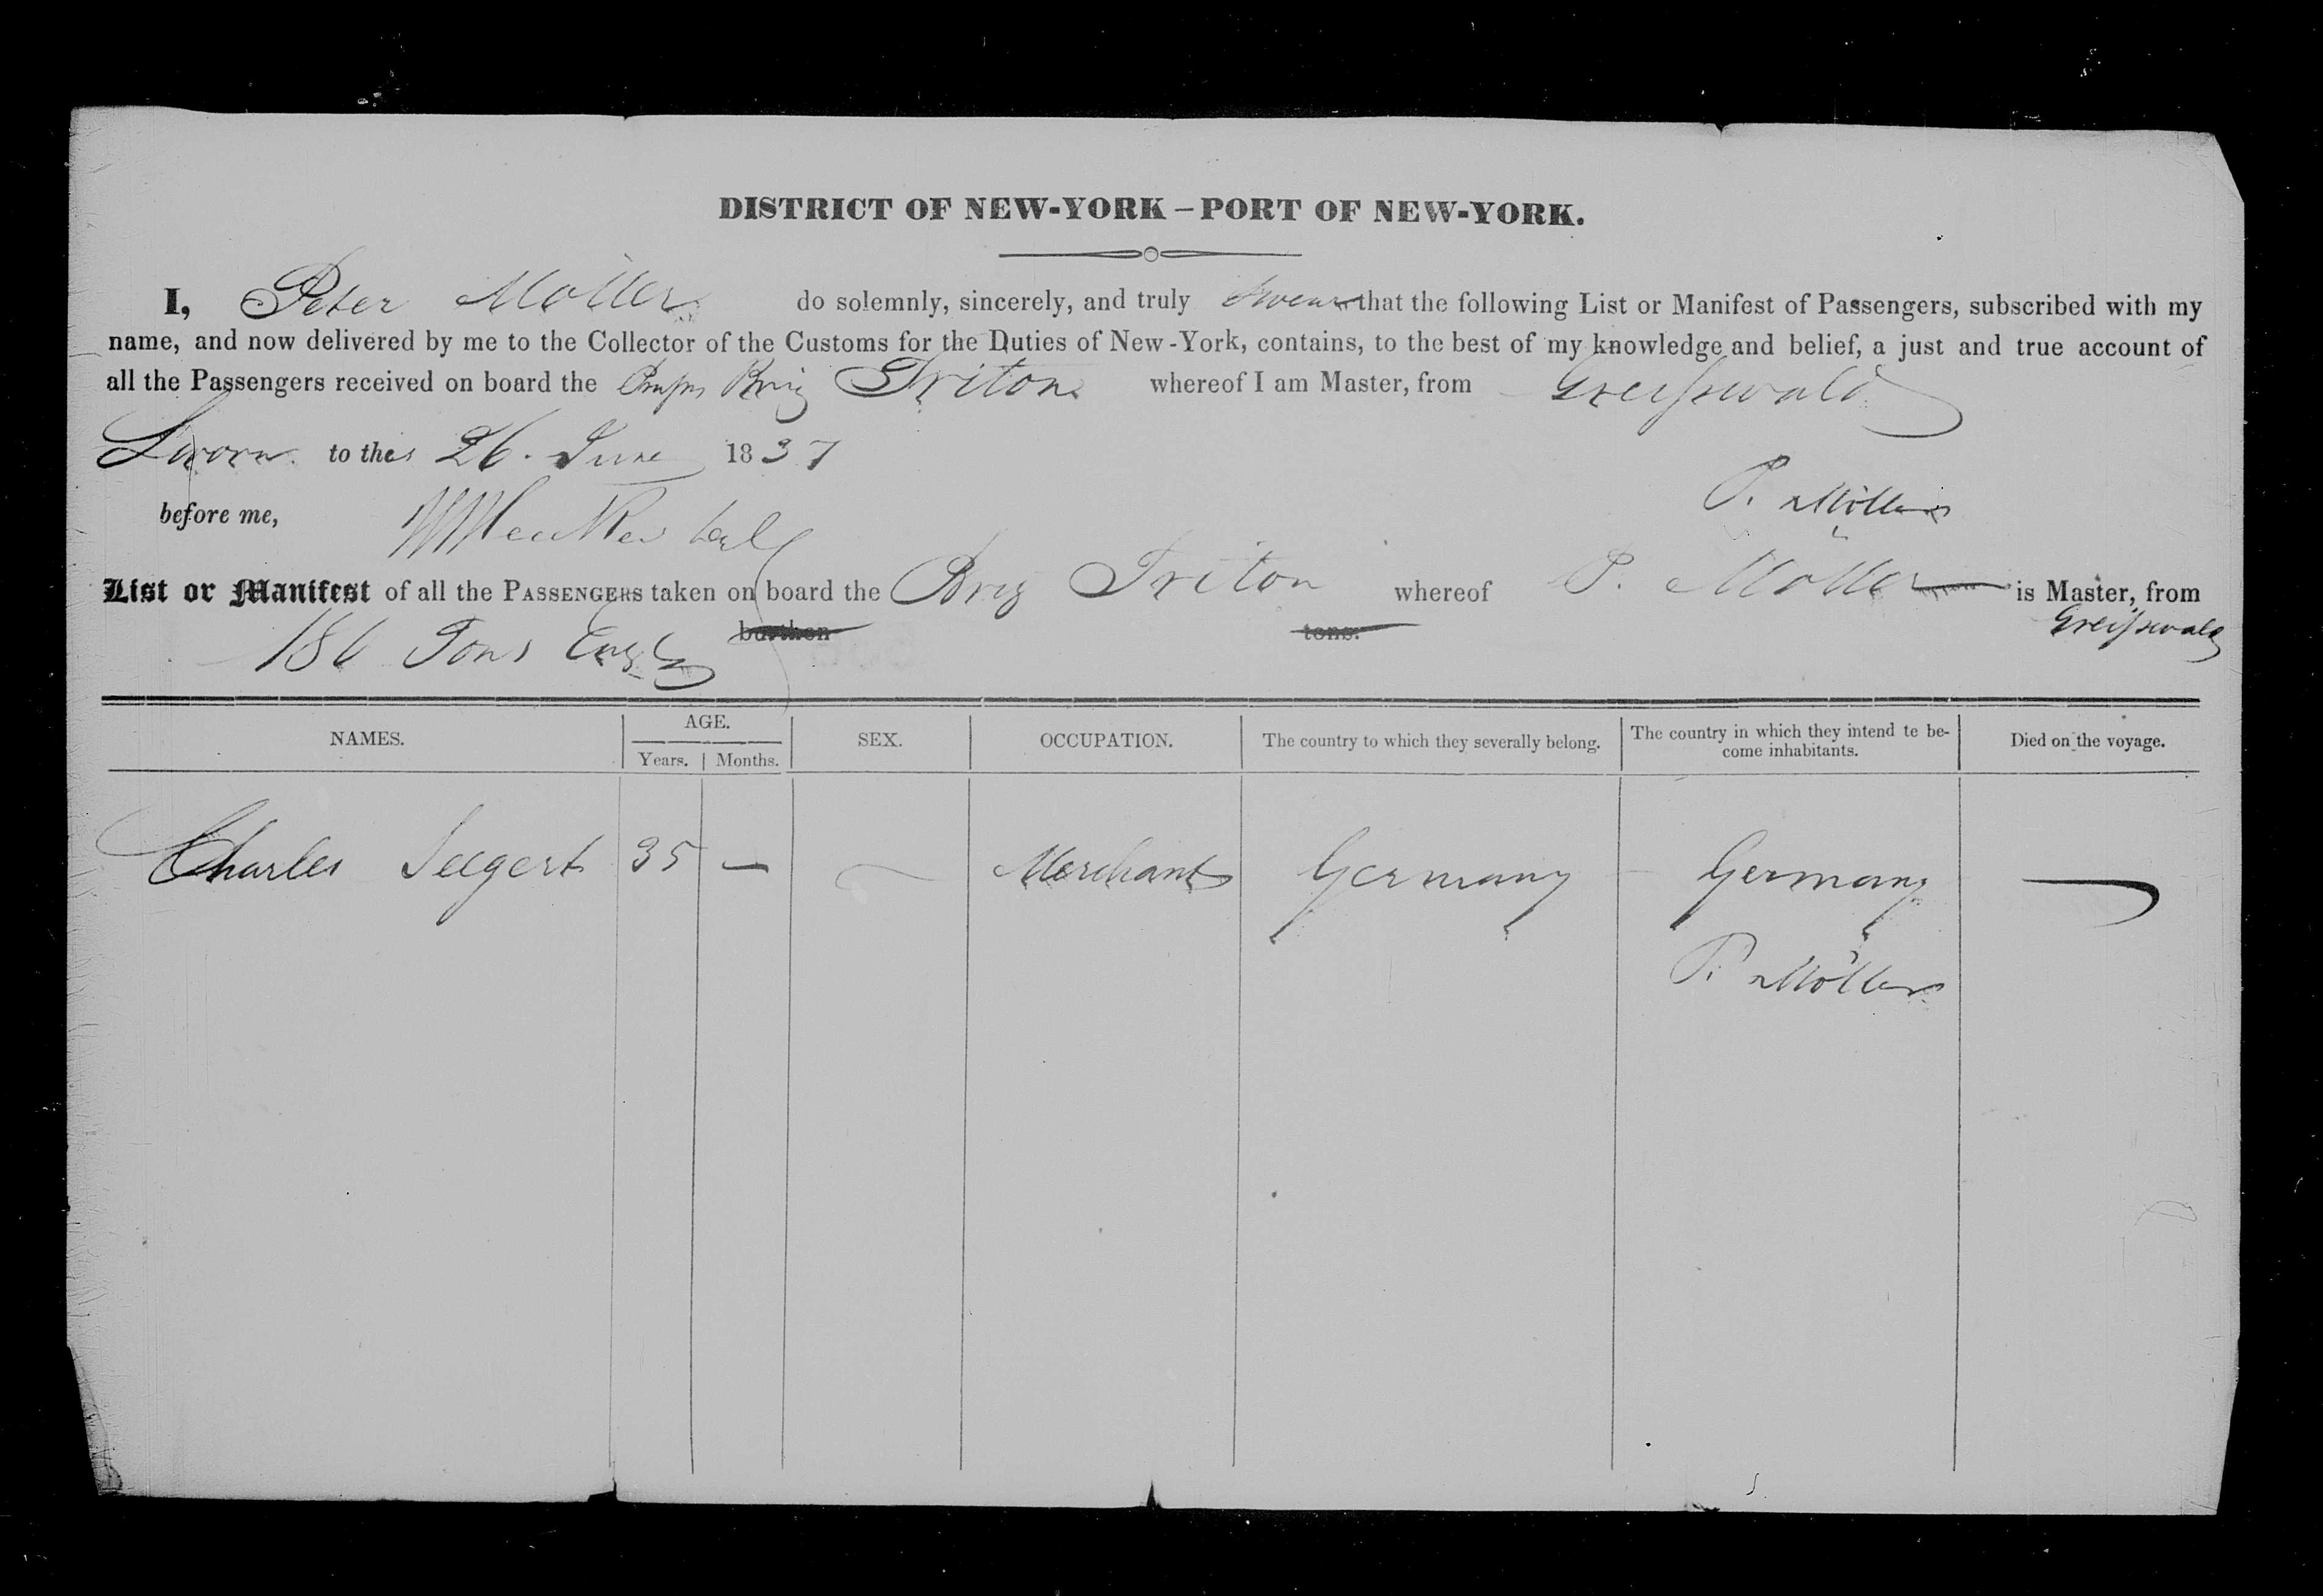 DISTRICT OF NEW-YORK – PORT OF NEW-YORK.
I, Peter Möller do solemnly, sincerely, and truly swear that the following List or Manifest of Passengers, subscribed with my
name, and now delivered by me to the Collector of the Customs for the Duties of New-York, contains, to the best of my knowledge and belief, a just and true account of
all the Passengers received on board the Brig Triton whereof I am Master, from Greifswald
Sworn to this 26. June 1837
P. Möller
before me,
List or Manifest of all the PASSENGERS taken on board the Brig Triton whereof P. Möller is Master, from
Greifswald
186 Tons burthen tons.
NAMES. AGE. SEX. OCCUPATION. The country to which they severally belong. The country in which they intend te be-
come inhabitants. Died on the voyage.
Years. Months.
Charles Seegert 35 — — Merchant Germany Germany —
P. Möller